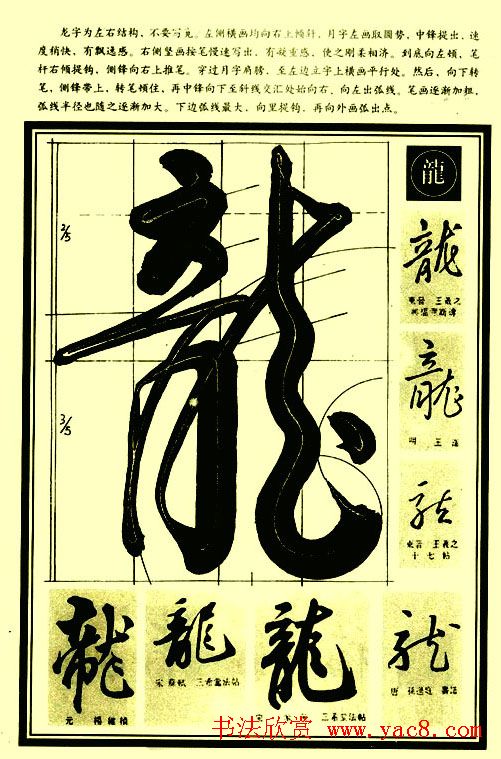 龙字为左右结构，不要写宽。左侧横画均向右上倾斜，月字左画取圆势，中锋提出，速
度稍快，有飘逸感。右侧竖画按笔慢速写出，有凝重感，使之刚柔相济。到底向左顿，笔
杆右倾提钩，侧锋向右上推笔。穿过月字肩膀，至左边立字上横画平行处。然后，向下转
笔，侧锋带上，转笔顿住，再中锋向下至斜线交汇处始向右、向左出弧线。笔画逐渐加粗，
弧线半径也随之逐渐加大。下边弧线最大，向里提钩，再向外画弧出点。
龍
2/5
3/5
龍
龍
東晋 王羲之
龍
明 王
龍
東晋 王羲之
十七帖
龍
元 楊維楨
龍
宋 蔡 三希堂法帖
龍
宋 三希堂法帖
龍
唐 孫過庭 書譜
书法欣赏 www.yac8.com